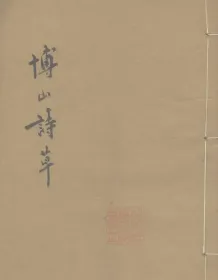 博山詩草